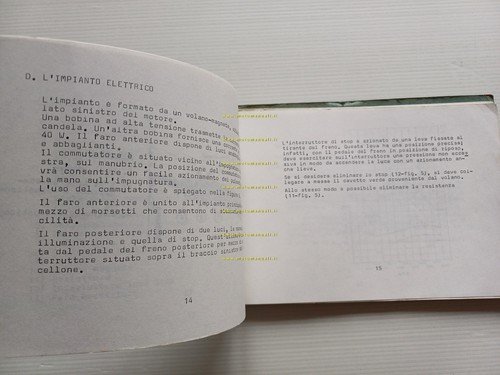 D. L'IMPIANTO ELETTRICO
L'impianto è formato da un volano-magnete,
lato sinistro del motore.
Una bobina ad alta tensione trasmette la
candela. Un'altra bobina fornisce una
40 W. Il faro anteriore dispone di luci
e abbaglianti.
Il commutatore è situato vicino all'impugnatura
stra, sul manubrio. La posizione del commutatore
vrà consentire un facile azionamento del
la mano sull'impugnatura.
L'uso del commutatore è spiegato nella figura
Il faro anteriore è unito all'impianto
mezzo di morsetti che consentono di
cilità.
Il faro posteriore dispone di due luci, la
illuminazione e quella di stop. Quest'ultima
ta dal pedale del freno posteriore per mezzo
terruttore situato sopra il braccio sinistro
cellone.
14
L'interruttore di stop è azionato da una leva fissata al
tirante del freno. Questa leva ha una posizione precisa:
infatti, con il pedale del freno in posizione di riposo,
deve esercitare sull'interruttore una pressione non
siva in modo da accendere la luce con un azionamento an
che lieve.
Se si desidera eliminare lo stop (12-fig. 5), si deve col
legare a massa il cavetto verde proveniente dal volano.
Allo stesso modo è possibile eliminare la resistenza
(11-fig. 5).
15